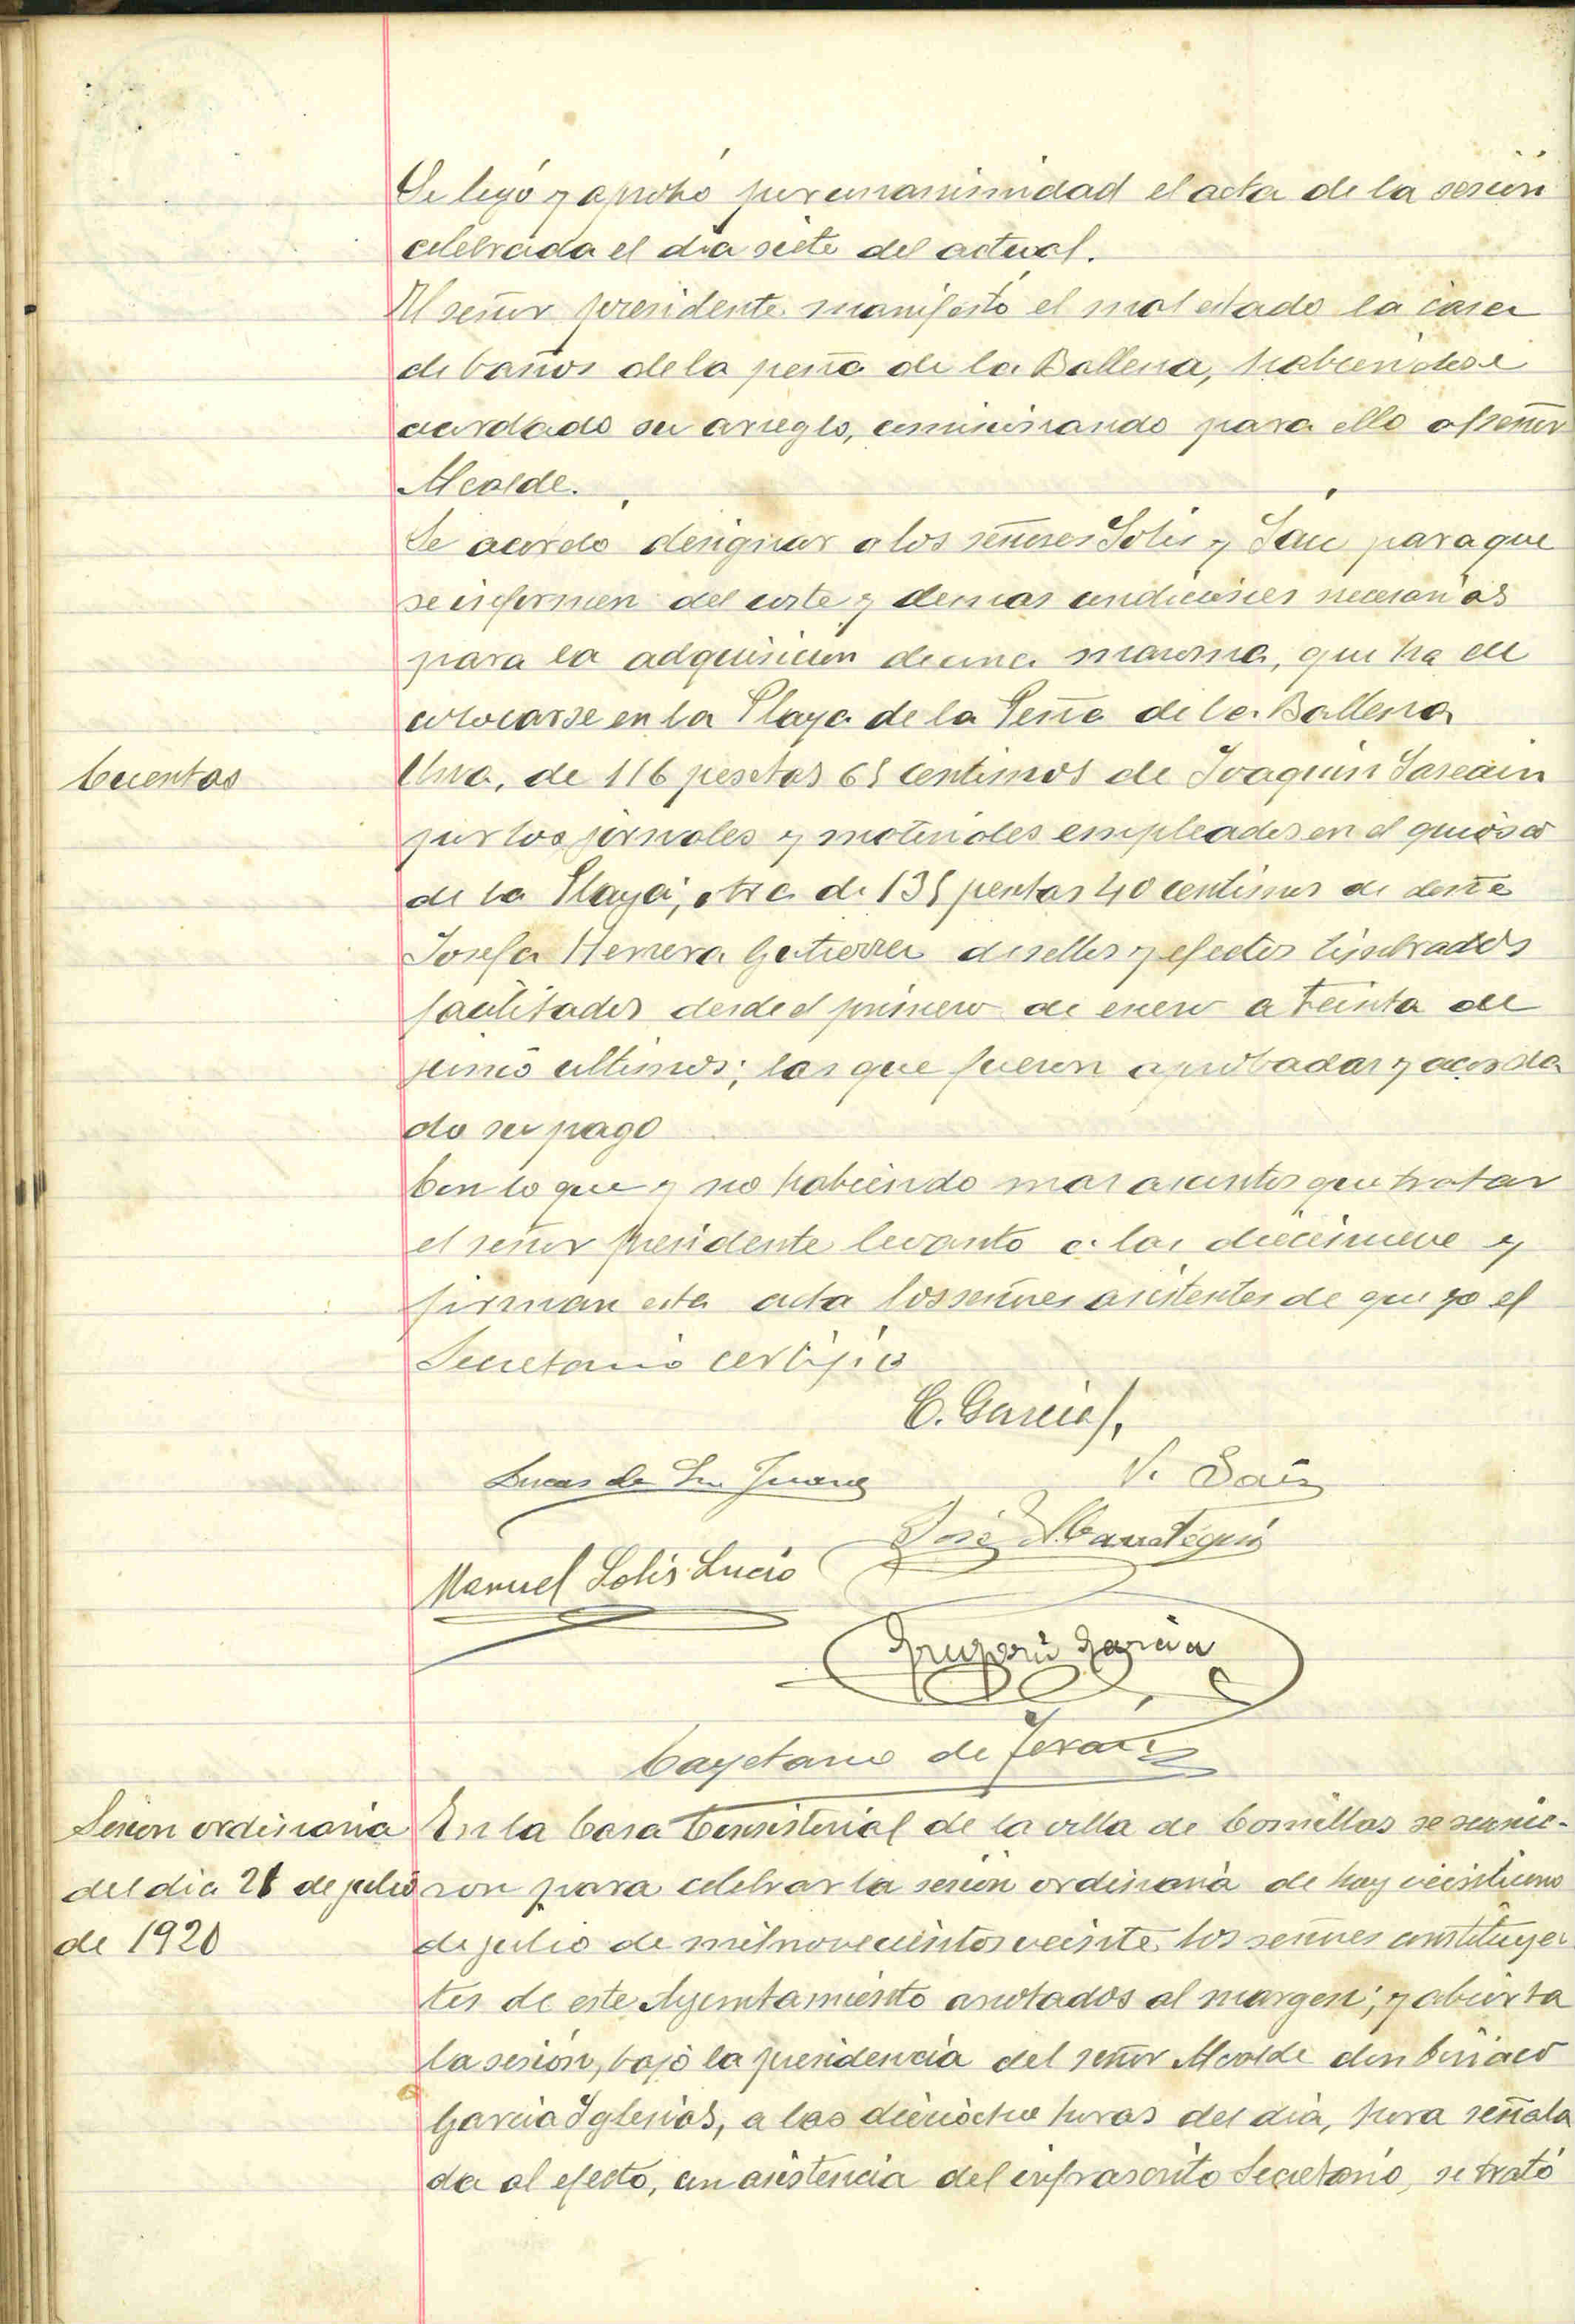 Se leyó y aprobó por unanimidad el acta de la sesión
celebrada el dia siete del actual.
El señor presidente manifestó el mal estado la casa
de baños de la peña de la Ballena, habiendose
acordado su arreglo, comisionando para ello al señor
Alcalde.
Se acordó designar a los señores Solis y Saiz para que
se informen del coste y demas condiciones necesarias
para la adquisicion de una maroma, que ha de
colocarse en la Playa de la Peña de la Ballena
Cuentas
Una, de 116 pesetas 65 centimos de Joaquin
por los jornales y materiales empleados en el quiosco
de la Playa; otra de 135 pesetas 40 centimos de doña
Josefa Herrera Gutierrez de sellos y efectos timbrados
facilitados desde el primero de enero a treinta de
junio ultimos; las que fueron aprobadas y acorda
do su pago
Con lo que y no habiendo mas asuntos que tratar
el señor presidente levantó a las diecinueve y
firman esta acta los señores asistentes de que yo el
Secretario certifico
C. Garcia I.
Lucas de San Juan
V. Saiz
José
Manuel Solis Lucio
Gregorio Garcia
Cayetano de Terán
Sesion ordinaria
del dia 21 de julio
de 1920
En la Casa Consistorial de la villa de Comillas se reunie-
ron para celebrar la sesion ordinaria de hoy veintiuno
de julio de mil novecientos veinte, los señores constituyen
tes de este Ayuntamiento anotados al margen; y abierta
la sesion, bajo la presidencia del señor Alcalde don Ciriaco
Garcia Iglesias, a las dieciocho horas del dia, hora señala
da al efecto, con asistencia del infrascrito Secretario, se trató